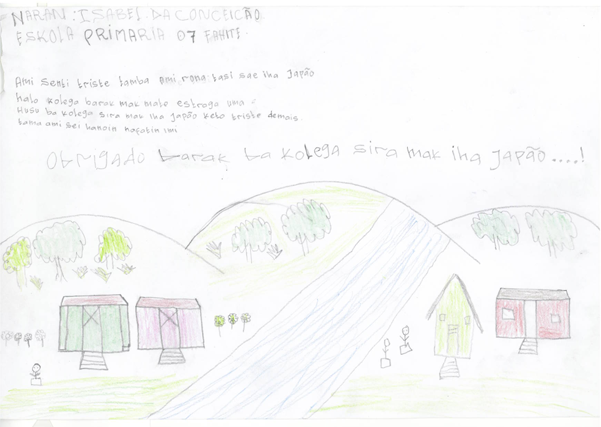 NARAN : ISABEL DA CONCEICÃO
ESKOLA PRIMARIA 07 FAHITE
Ami senti triste tamba ami rona tasi sae iha Japão
halo kolega barak mak mate estraga uma
Husu ba kolega sira mak iha Japão keto triste demais
tama ami sei hanoin nafatin imi
Obrigado barak ba kolega sira mak iha Japão....!